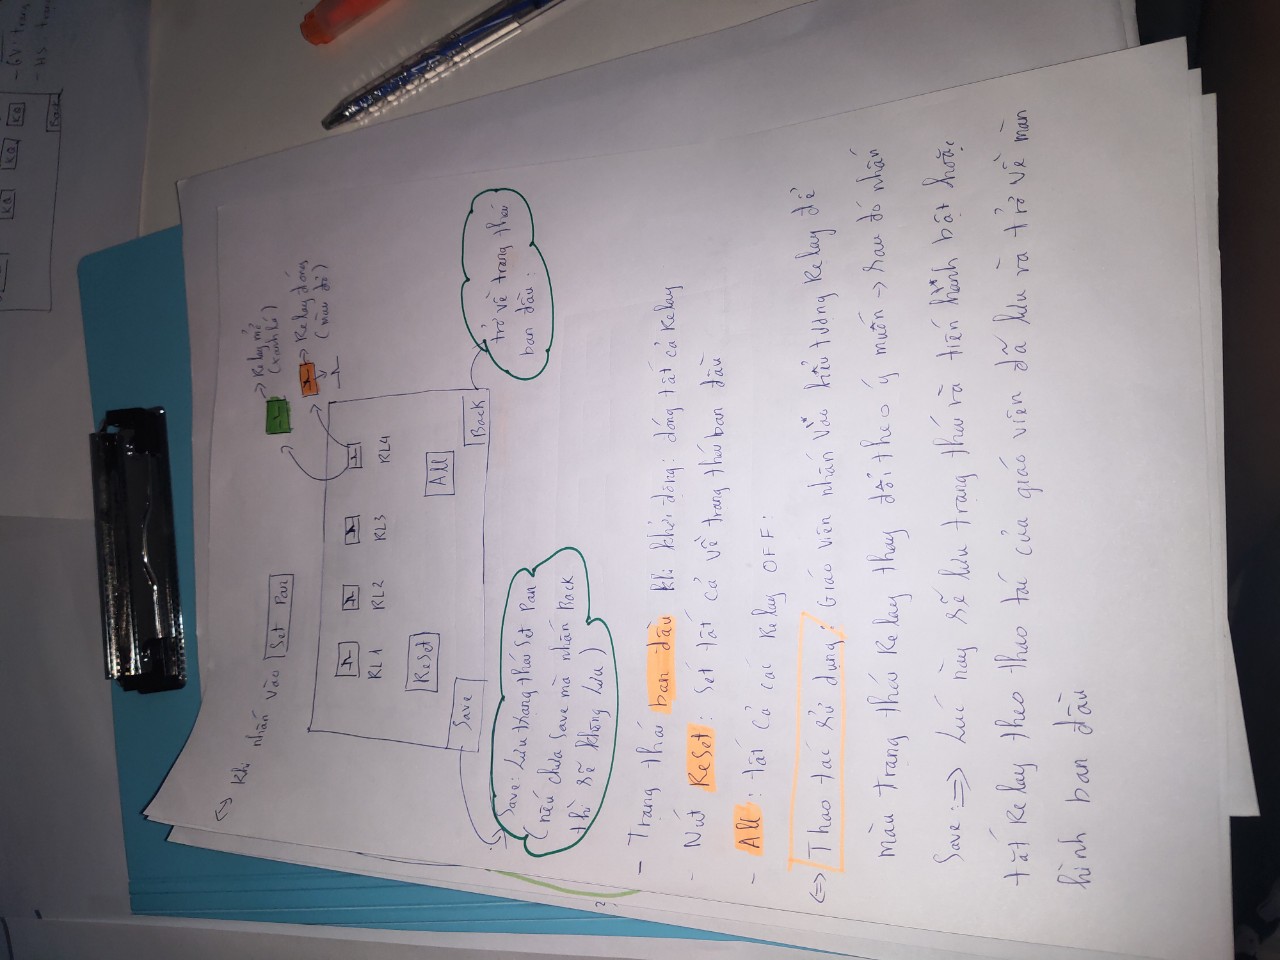 KQ KQ KQ
- GV: trang
- HS: trang
Back
<=> Khi nhấn vào Set Pan
Relay mở
(xanh lá)
Relay đóng
(màu đỏ)
RL1 RL2 RL3 RL4
ReSet
All
Save
Back
trở về trạng thái
ban đầu:
Save: Lưu trạng thái Set Pan
(nếu chưa save mà nhấn Back
thì sẽ không lưu)
?
- Trạng thái ban đầu khi khởi động: đóng tất cả Relay
- Nút ReSet: Set tất cả về trạng thái ban đầu
- All: tất cả các Relay OFF:
<=> Thao tác sử dụng: Giáo viên nhấn vào biểu tượng Relay để
màu trạng thái Relay thay đổi theo ý muốn → sau đó nhấn
Save: => Lúc này sẽ lưu trạng thái và tiến hành bật hoặc
tắt Relay theo thao tác của giáo viên đã lưu và trở về màn
hình ban đầu